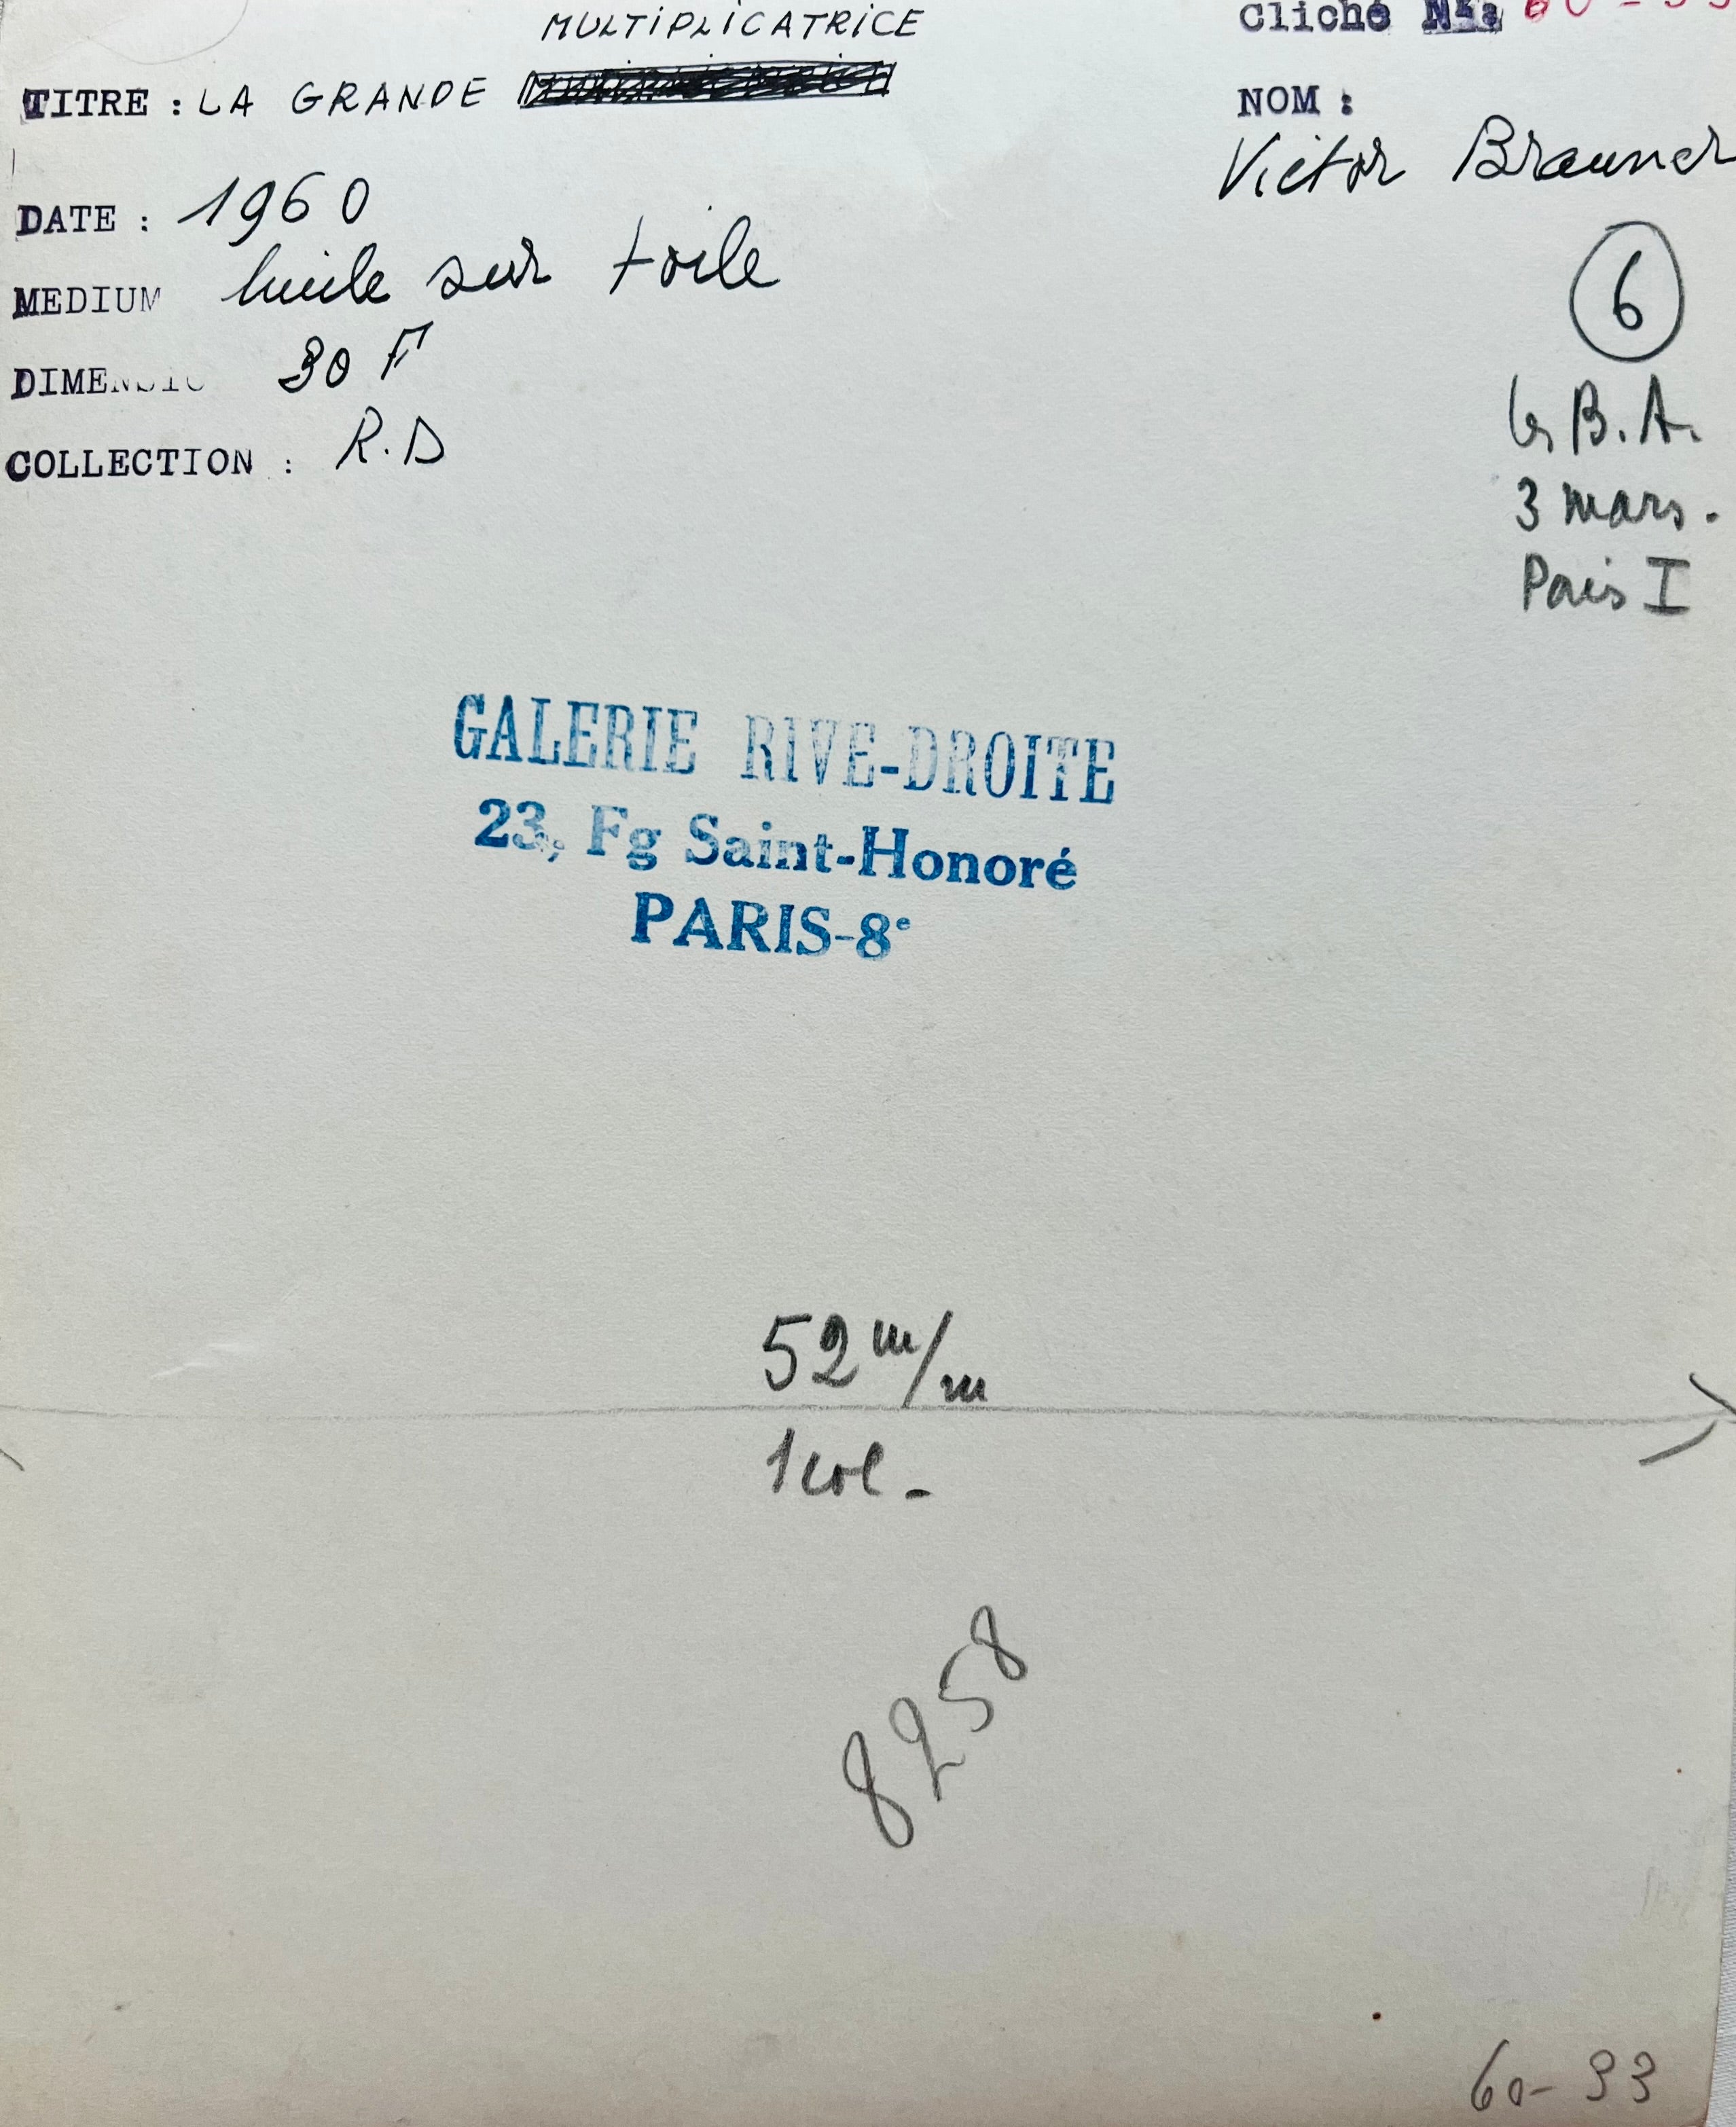 MULTIPLICATRICE
TITRE : LA GRANDE
DATE : 1960
MEDIUM huile sur toile
DIMENSIO 30 F
COLLECTION : R.D
Cliché
NOM :
Victor Brauner
6
les B.A.
3 mars.
Paris I
GALERIE RIVE-DROITE
23, Fg Saint-Honoré
PARIS-8e
52 m/m
1 col -
8258
60-33